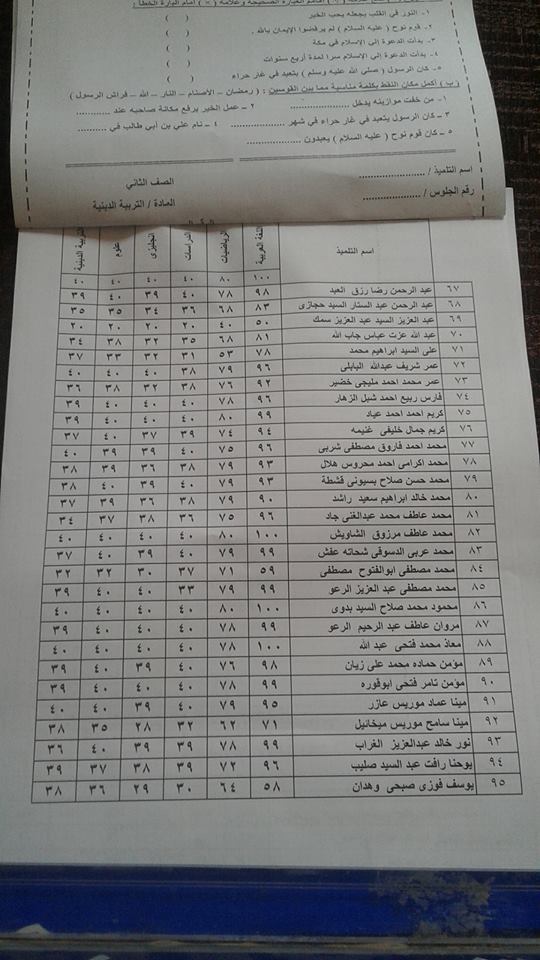 ١- النور في القلب يجعله يحب الخير ( )
٢- قوم نوح ( عليه السلام ) لم يرفضوا الإيمان بالله . ( )
٣- بدأت الدعوة إلي الإسلام في مكة ( )
٤- بدأت الدعوة إلي الإسلام سرا لمدة أربع سنوات ( )
٥- كان الرسول ( صلي الله عليه وسلم ) يتعبد في غار حراء ( )
( ب ) أكمل مكان النقط بكلمة مناسبة مما بين القوسين : ( رمضان – الأصنام – النار – الله – فراش الرسول )
١- من خفت موازينه يدخل .................. ٢ – عمل الخير يرفع مكانة صاحبه عند ............
٣ – كان الرسول يتعبد في غار حراء في شهر .................. ٤ – نام علي بن أبي طالب في ..........
٥ – كان قوم نوح ( عليه السلام ) يعبدون ..................
اسم التلميذ / .......................... الصف الثاني
رقم الجلوس / .................... المادة / التربية الدينية
اسم التلميذ اللغة العربية الرياضيات الدراسات انجليزى علوم التربية الدينية
١٠٠ ٨٠ ٤٠ ٤٠ ٤٠ ٤٠
٦٧ عبد الرحمن رضا رزق العبد ٩٨ ٧٨ ٤٠ ٣٩ ٤٠ ٣٩
٦٨ عبد الرحمن عبد الستار السيد حجازى ٨٣ ٦٨ ٣٦ ٣٤ ٣٥ ٣٥
٦٩ عبد العزيز السيد عبد العزيز سمك ٥٠ ٤٠ ٢٠ ٢٠ ٢٠ ٢٠
٧٠ عبد الله عزت عباس جاب الله ٨١ ٦٨ ٣٥ ٣٢ ٣٨ ٣٤
٧١ على السيد ابراهيم محمد ٧٨ ٥٣ ٣١ ٣٢ ٣٣ ٣٧
٧٢ عمر شريف عبدالله البابلى ٩٦ ٧٩ ٣٨ ٤٠ ٤٠ ٤٠
٧٣ عمر محمد احمد مليجى خضير ٩٢ ٧٦ ٣٨ ٣٢ ٣٨ ٣٦
٧٤ فارس ربيع احمد شبل الزهار ٩٦ ٧٨ ٤٠ ٤٠ ٤٠ ٣٩
٧٥ كريم احمد احمد عياد ٩٩ ٨٠ ٤٠ ٤٠ ٤٠ ٣٩
٧٦ كريم جمال خليفى غنيمه ٩٤ ٧٤ ٣٩ ٣٧ ٤٠ ٣٧
٧٧ محمد احمد فاروق مصطفى شربى ٩٦ ٧٥ ٤٠ ٣٩ ٣٩ ٤٠
٧٨ محمد اكرامى احمد محروس هلال ٩٣ ٧٩ ٣٨ ٣٦ ٣٩ ٣٨
٧٩ محمد حسن صلاح بسيونى قشطة ٩٣ ٧٩ ٤٠ ٣٩ ٤٠ ٣٨
٨٠ محمد خالد ابراهيم سعيد راشد ٩٠ ٧٩ ٣٨ ٣٦ ٣٩ ٣٧
٨١ محمد عاطف محمد عبدالغنى جاد ٩٦ ٧٥ ٣٦ ٣٨ ٣٧ ٣٤
٨٢ محمد عاطف مرزوق الشاويش ١٠٠ ٨٠ ٤٠ ٤٠ ٤٠ ٤٠
٨٣ محمد عربى الدسوقى شحاته عفش ٩٩ ٧٩ ٤٠ ٣٩ ٤٠ ٣٧
٨٤ محمد مصطفى ابوالفتوح مصطفى ٥٩ ٧١ ٣٧ ٣٠ ٣٢ ٣٢
٨٥ محمد مصطفى عبد العزيز الرعو ٩٩ ٧٩ ٣٣ ٤٠ ٤٠ ٣٩
٨٦ محمود محمد صلاح السيد بدوى ١٠٠ ٨٠ ٤٠ ٤٠ ٤٠ ٤٠
٨٧ مروان عاطف عبد الرحيم الرعو ٩٩ ٧٨ ٤٠ ٤٠ ٤٠ ٣٩
٨٨ معاذ محمد فتحى عبد الله ١٠٠ ٧٨ ٤٠ ٤٠ ٤٠ ٤٠
٨٩ مؤمن حماده محمد على زيان ٩٨ ٧٦ ٤٠ ٣٩ ٤٠ ٣٩
٩٠ مؤمن تامر فتحى ابوقوره ٩٩ ٧٨ ٤٠ ٤٠ ٤٠ ٣٩
٩١ مينا عماد موريس عازر ٩٥ ٧٩ ٤٠ ٣٩ ٤٠ ٤٠
٩٢ مينا سامح موريس ميخانيل ٧١ ٦٢ ٣٢ ٢٨ ٣٥ ٣٨
٩٣ نور خالد عبدالعزيز الغراب ٩٩ ٧٨ ٣٩ ٣٩ ٤٠ ٣٦
٩٤ يوحنا رافت عبد السيد صليب ٩٦ ٧٢ ٣٩ ٣٨ ٣٧ ٣٩
٩٥ يوسف فوزى صبحى وهدان ٥٨ ٦٤ ٣٠ ٢٩ ٣٦ ٣٨